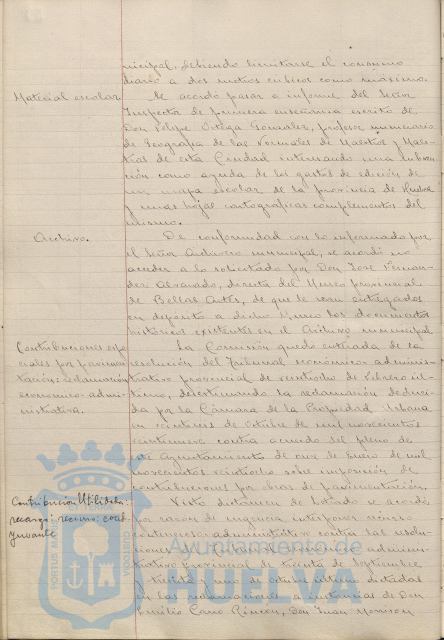 nicipal, debiendo limitarse el consumo
diario a dos metros cúbicos como máximo.
Material escolar.
Se acordó pasar a informe del Señor
Inspector de primera enseñanza escrito de
Don Felipe Ortega González, profesor numerario
de Geografía de las Normales de Maestros y Maes-
tras de esta Ciudad interesando una subven-
ción como ayuda de los gastos de edición de
un mapa escolar de la provincia de Huelva
y unas hojas cartográficas complementos del
mismo.
Archivo.
De conformidad con lo informado por
el Señor Archivero municipal, se acordó no
acceder a lo solicitado por Don José Fernan-
dez Alvarado, director del Museo provincial
de Bellas Artes, de que le sean entregados
en depósito a dicho Museo los documentos
históricos existentes en el Archivo municipal.
Contribuciones espe-
ciales por pavimen-
tación: reclamación
económico-admi-
nistrativa.
La Comisión quedó enterada de la
resolución del Tribunal económico-adminis-
trativo provincial de veintiocho de Febrero úl-
timo, desestimando la reclamación deduci-
da por la Cámara de la Propiedad Urbana
en veintitres de Octubre de mil novecientos
contra acuerdo del pleno de
este Ayuntamiento de once de Enero de mil
novecientos veintiocho sobre imposición de
contribuciones por obras de pavimentación.
Contribución Utilidades:
recargo: recurso: coad-
yuvante
Visto dictamen de Letrado se acordó
por razón de urgencia interponer recurso
contencioso administrativo contra las resolu-
ciones del Tribunal económico adminis-
trativo provincial de treinta de Septiembre
y treinta y uno de Octubre último dictadas
en las reclamaciones a instancias de Don
Emilio Cano Rincón, Don Juan Morrison
Ayuntamiento de
HUELVA